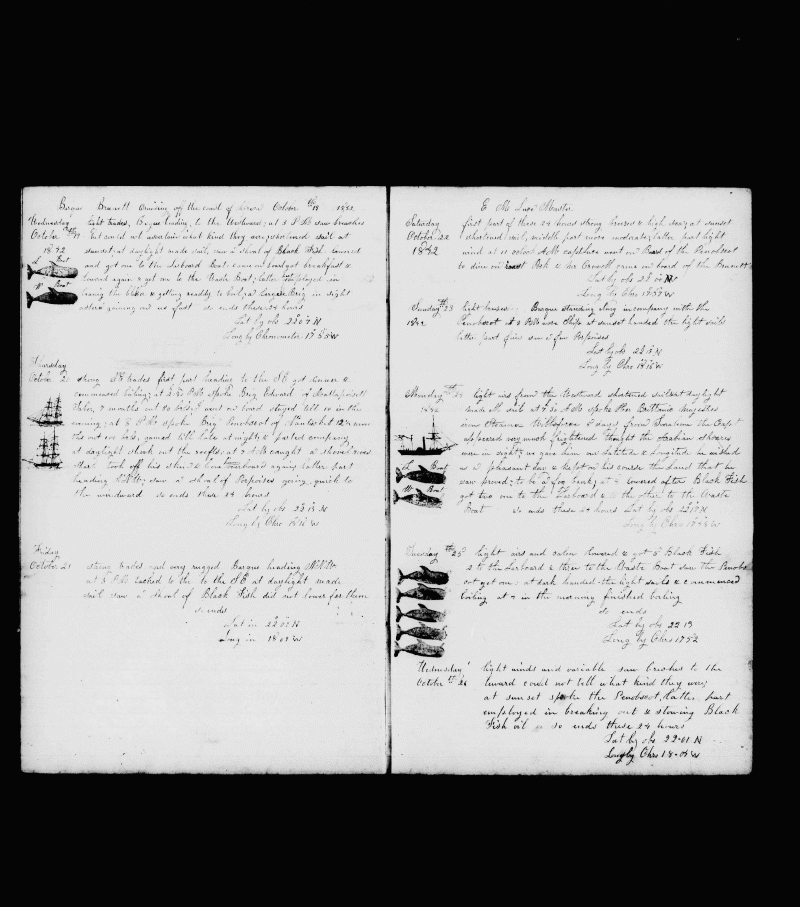 Barque Bennett Cruising off the coast of October 19 1842
Wednesday light trades, Barque heading to the Westward; at 5 P.M. saw breaches
October 19th but could not ascertain what kind they were shortened sail at
1842 sunset at daylight made sail, saw a shoal of Black Fish lowered
L Boat and got one to the Larboard Boat came on board got breakfast &
W Boat lowered again & got one to the Waist Boat; latter part employed in
& getting ready to boil, a large Brig in sight
astern gaining on us fast so ends these 24 hours
Lat by obs 22 07 N
Long by Chronometer 17 55 W
Thursday
October 2 strong trades first part heading to the SE got dinner &
commenced boiling; at 3.30 P.M. spoke Brig Edward of Mattapoisett
months out 90 bbls, went on board stayed till 10 in the
evening; at 8 P.M. spoke Brig Penobscot of Nantucket 12½ mon
ths out 100 bbls, gamed till late at night & parted company
at daylight shook out the reefs; at 7 A.M. caught a shovel nose
shark took off his skin & hove overboard again; latter part
heading NWbW; saw a shoal of Porpoises going quick to
the windward so ends these 24 hours
Lat by obs 22 15 N
Long by Chro 18 16 W
Friday
October 21 strong trades and very rugged Barque heading NWbW
at 5 P.M. tacked to the to the SE at daylight made
sail saw a shoal of Black Fish did not lower for them
so ends
Lat in 22 02 N
Long in 18 07 W
E M Luce Master
Saturday first part of these 24 hours strong breezes & high sea; at sunset
October 22 shortened sail, middle part more moderate; latter part light
1842 wind at 11 o'clock A.M. captain went on Board of the Penobscot
to dine on roast Pork & her Crew came on board of the Bennett
Lat by obs 22 00 N
Long by Chro 17 57 W
Sunday 23 light breezes Barque standing along in company with the
1842 Penobscot at 3 P.M. wore Ship; at sunset handed the light sails
latter part fine saw a few Porpoises
Lat by obs 22 15 N
Long by Chro 18 15 W
Monday 24 light airs from the Westward shortened sail at daylight
1842 made all sail at 9.30 A.M. spoke Her Brittanic Majesties
Steamer Wilberforce days from the Capt
appeared very much frightened thought the Arabian shores
were in sight; we gave him our Latitude & Longitude he wished
L Boat us a pleasant day & kept on his course the Land that he
saw proved to be a fog bank; at 4 lowered after Black Fish
W Boat got two to the Larboard & the other to the Waist
Boat so ends these 24 hours Lat by obs 22 17 N
Long by Chro 17 58 W
Tuesday 25 light airs and calm lowered & got 5 Black Fish
2 to the Larboard & three to the Waist Boat saw the Penobs
cot get one; at dark handed the light sails & commenced
boiling at 7 in the morning finished boiling
so ends
Lat by obs 22 13
Long by Chro 17 52
Wednesday light winds and variable saw breaches to the
October 26 leeward could not tell what kind they were;
at sunset spoke the Penobscot, latter part
employed in breaking out & stowing Black
Fish oil so ends these 24 hours
Lat by obs 22-01 N
Long by Chro 18-04 W